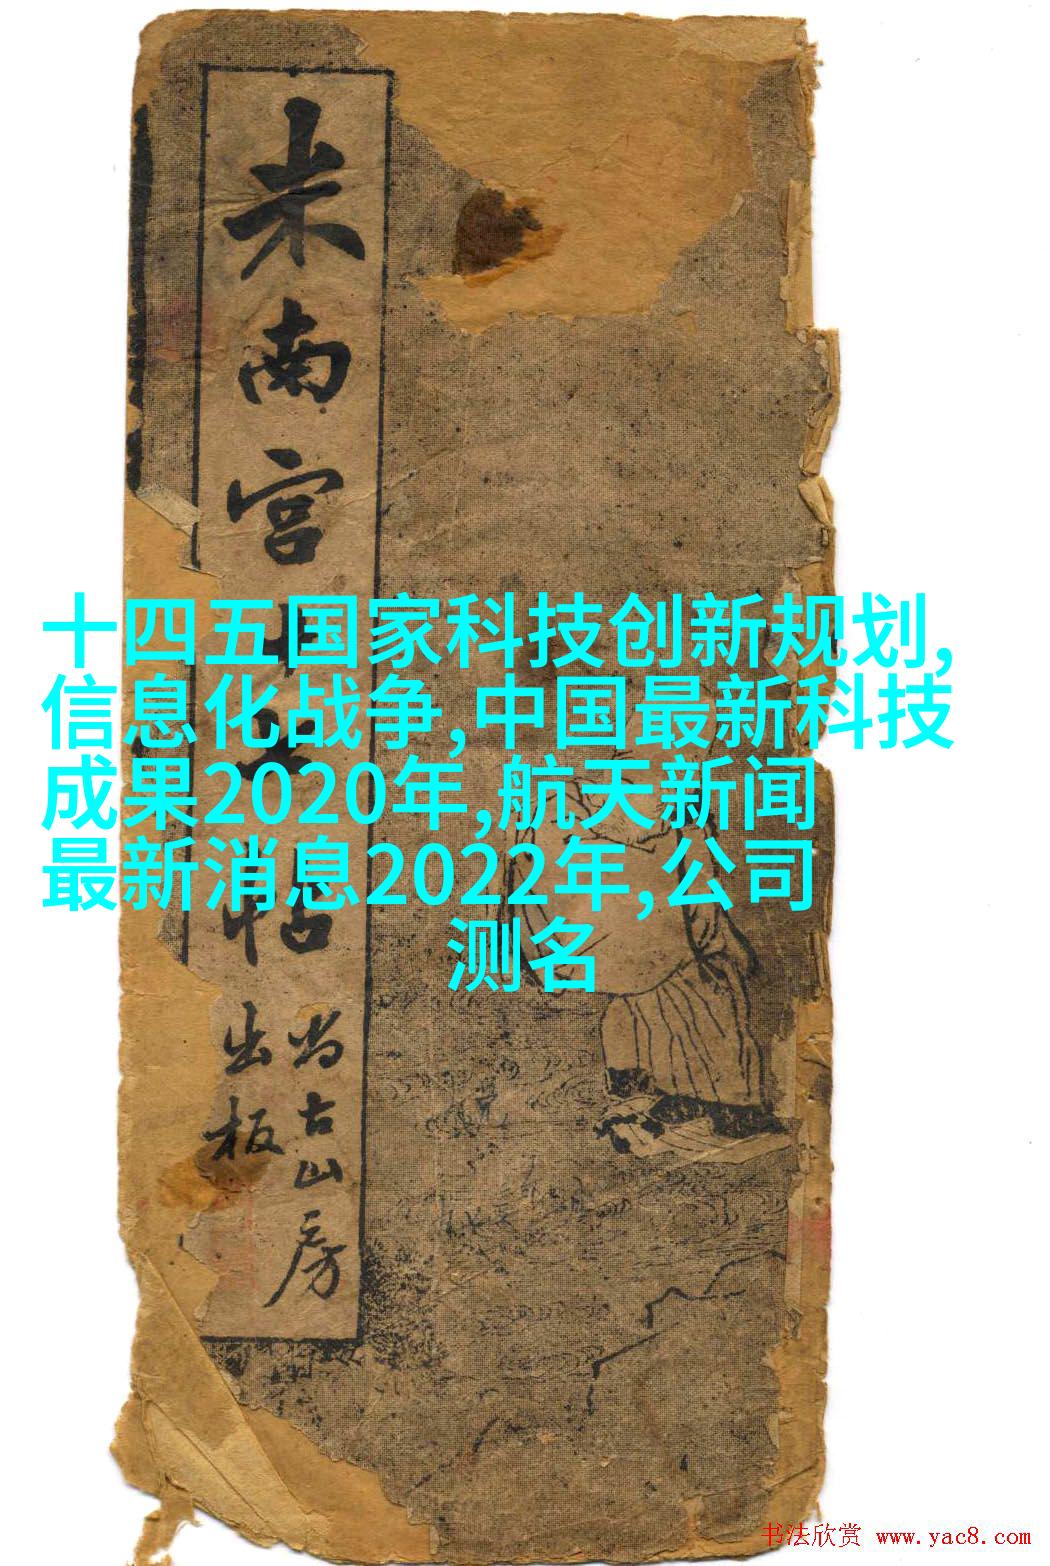 米南宮
帖
尚古山房
出板
十四五国家科技创新规划,
信息化战争,中国最新科技
成果2020年,航天新闻
最新消息2022年,公司
测名
书法欣赏 www.yac8.com